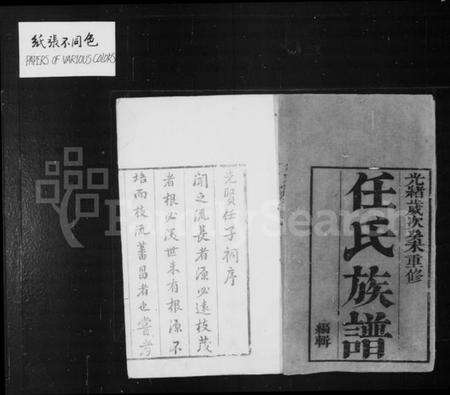 紙張不同色
PAPERS OF VARIOUS COLORS
光緒歲次癸未重修
任氏族譜
編輯
先賢任子祠序
聞之流長者源必遠枝茂
者根必深世未有根源不
培而枝流蕃昌者也嘗考
FamilySearch